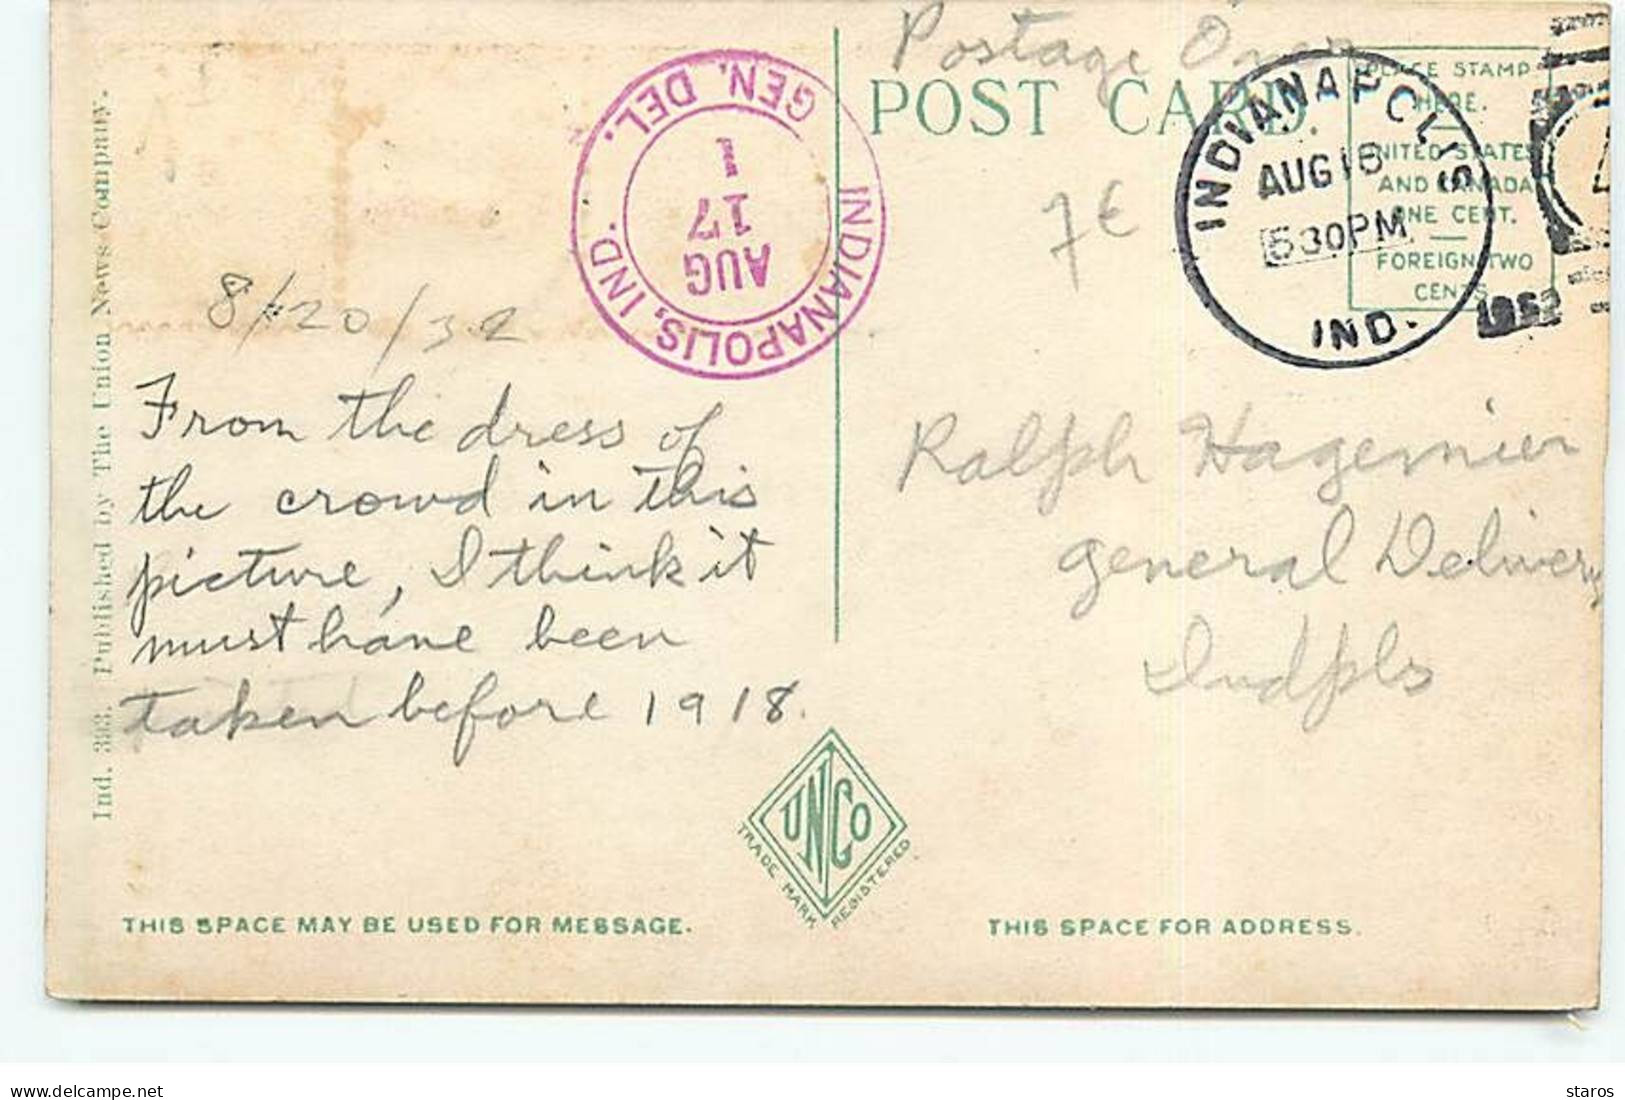 Postage Over
POST CARD
PLACE STAMP
HERE.
UNITED STATES
AND CANADA
ONE CENT.
FOREIGN TWO
CENTS
INDIANAPOLIS
AUG 16
530PM
IND.
1932
INDIANAPOLIS, IND.
GEN. DEL.
AUG
17
1
7€
8/20/32
From the dress of
the crowd in this
picture, I think it
must have been
taken before 1918.
Ralph Hagemier
General Delivery
Indpls
Ind. 393. Published by The Union News Company.
UNCO
TRADE MARK REGISTERED
THIS SPACE MAY BE USED FOR MESSAGE.
THIS SPACE FOR ADDRESS.
delcampe.net
staros